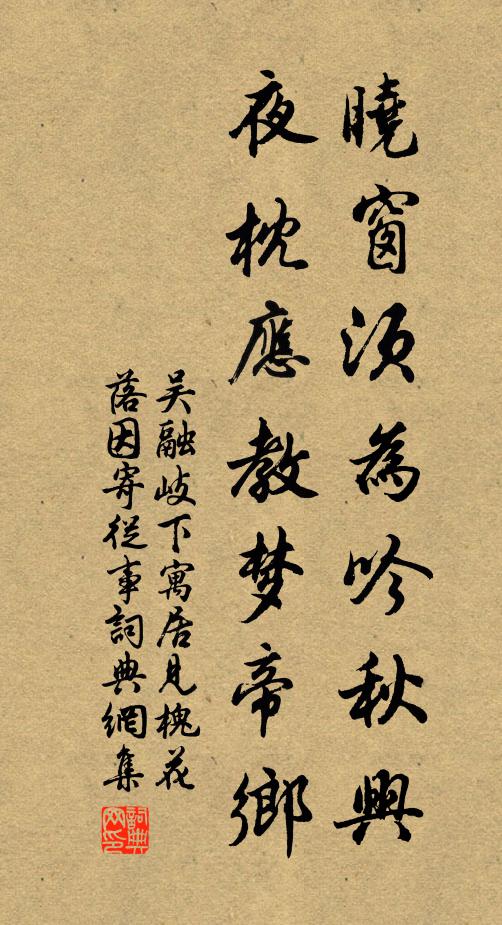 曉窗須為吟秋興
夜枕應教梦帝鄉
吴融岐下寓居見槐花
落因寄從事詞典網集
詞典网印